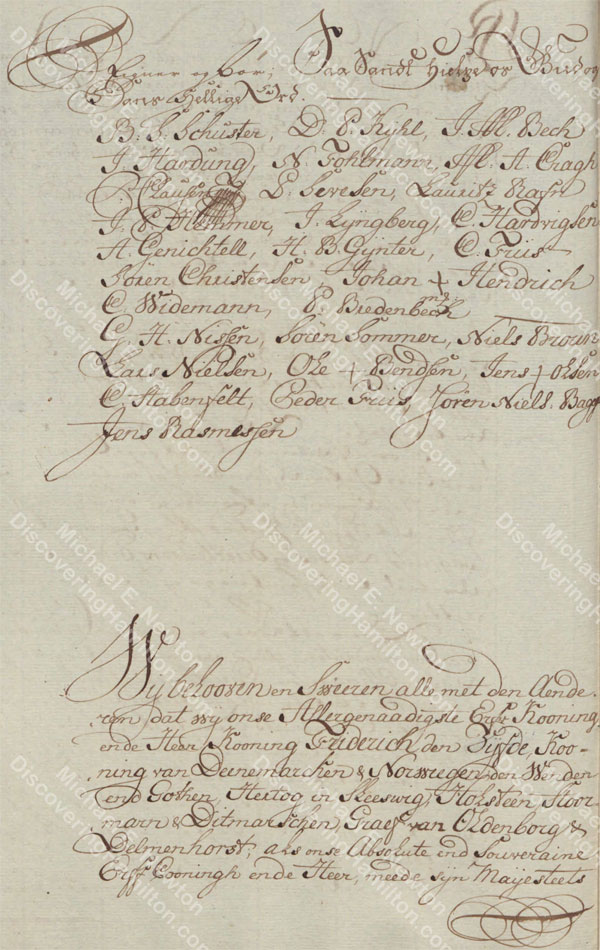 Eigner og bør; Saa Sandt Hielpe os Gud og
Hans Hellige Ord.
B. L. Schuster, D. P. Kyhl, J. M. Bech
J. Hardung, N. Fohlmann, M. A. Cragh
P. Clausen, P. Sevesen, Lauritz Rafn
J. P. Klemmer, J. Lyngberg, C. Hartvigsen
A. Genichtell, H. B. Gynter, C. Friis
Sören Christensen, Johan + Hendrich
C. Widemann, P. Bredenbech
G. H. Nissen, Sören Sommer, Niels Broun
Lars Nielsen, Ole + Bendsen, Jens + Olsen
C. Stabenfelt, Peder Friis, Sören Niels. Bagg
Jens Rasmessen
Wij belooven en Sweeren alle met den Aende-
ren dat wij onse Allergenaadigste Erff Kooning
ende Heer Kooning Friderich den Vifde Koo-
ning van Deenemarchen & Norwegen den Wenden
end Gothen, Hertog in Sleeswig, Holsteen, Stoor-
marn & Ditmarschen, Graef van Oldenborg &
Delmenhorst; als onse Absolute end Souveraine
Erff Cooningh ende Heer, meede sijn Mayesteets
Michael E. Newton
DiscoveringHamilton.com